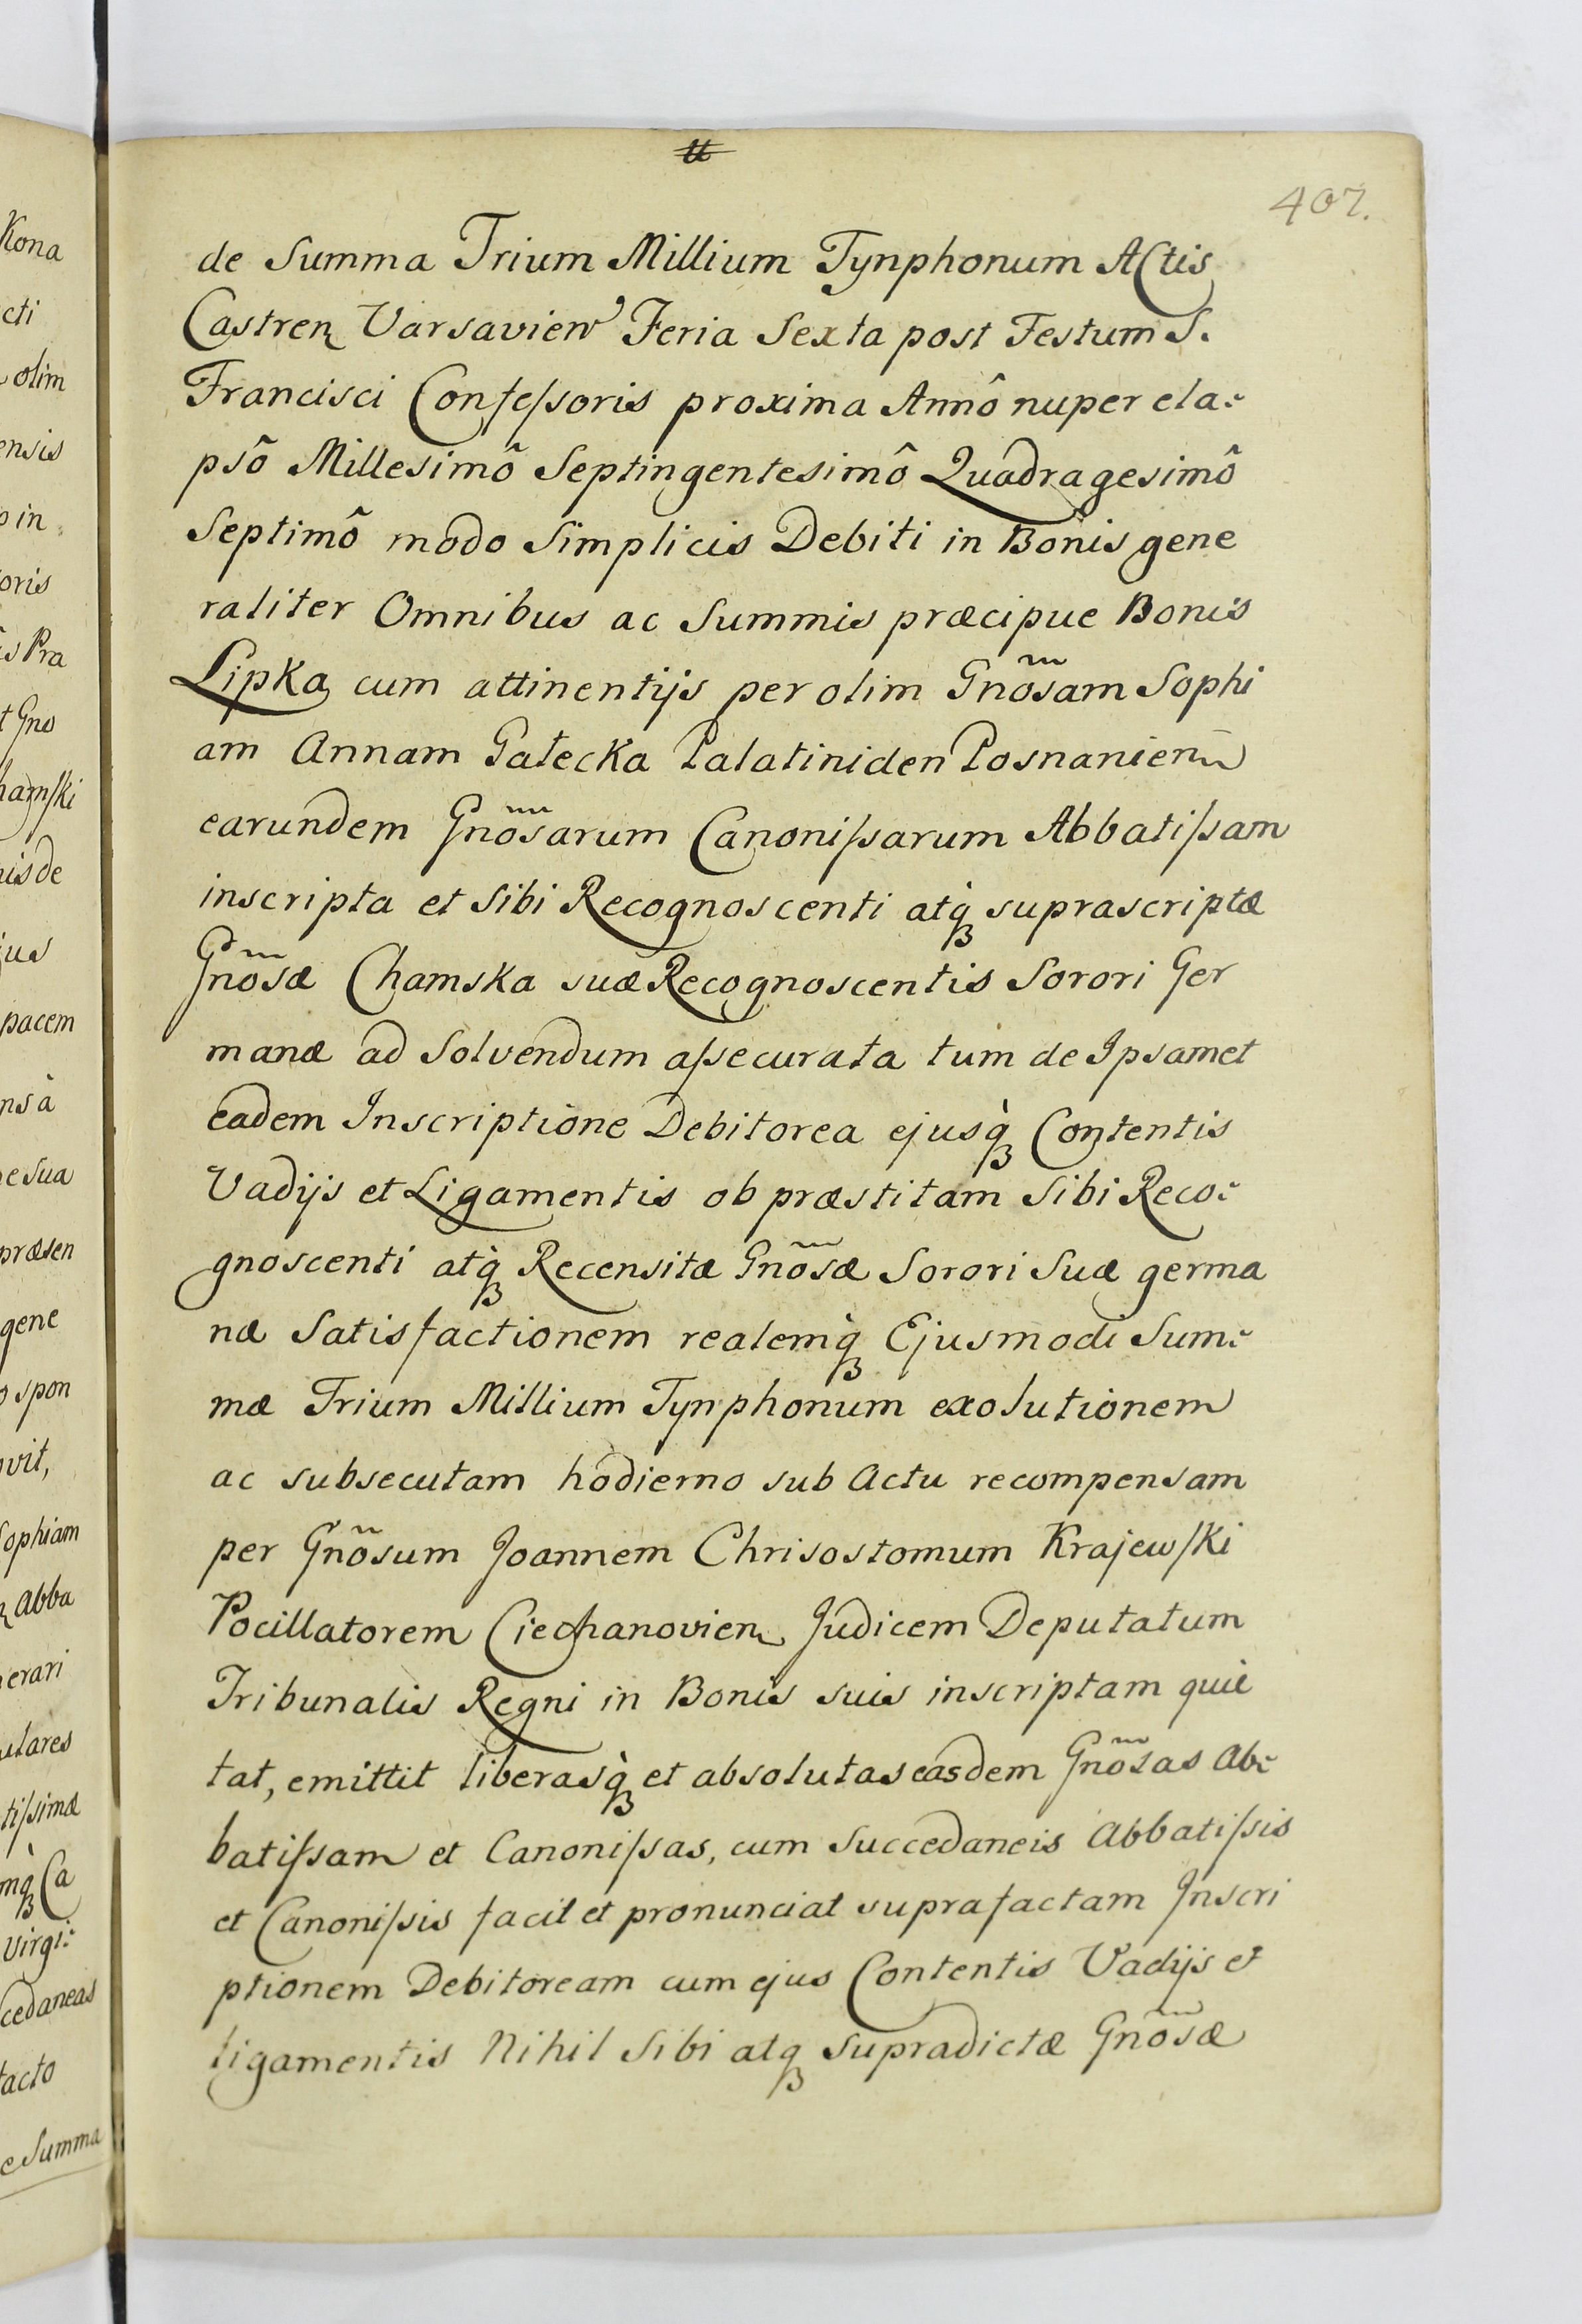 407.
de Summa Trium Millium Tynphonum Actis
Castren Varsavien Feria Sexta post Festum S.
Francisci Confeſsoris proxima Annô nuper ela-
psô Millesimô Septingentesimô Quadragesimô
Septimô modo Simplicis Debiti in Bonis gene
raliter Omnibus ac Summis præcipue Bonis
Lipka cum attinentijs per olim Gnõsam Sophi
am Annam Gałecka Palatiniden Posnanien
earundem Gnõsarum Canoniſsarum Abbatiſsam
inscripta et Sibi Recognoscenti atq́ꝫ suprascriptæ
Gnõsæ Chamska suæ Recognoscentis Sorori Ger
manæ ad Solvendum aſsecurata tum de Ipsamet
eadem Inscriptione Debitorea ejusq̀ꝫ Contentis
Vadijs et Ligamentis ob præstitam Sibi Reco-
gnoscenti atq̀ꝫ Recensitæ Gnõsæ Sorori Suæ germa
næ Satisfactionem realemq̀ꝫ Ejusmodi Sum-
mæ Trium Millium Tynphonum exolutionem
ac subsecutam hodierno sub Actu recompensam
per Gnõsum Joannem Chrisostomum Krajewſki
Pocillatorem Ciechanovien Judicem Deputatum
Tribunalis Regni in Bonis suis inscriptam quie
tat, emittit liberasq̀ꝫ et absolutas easdem Gnõsas Ab-
batiſsam et Canoniſsas, cum Succedaneis Abbatiſsis
et Canoniſsis facit et pronunciat suprafactam Inscri
ptionem Debitoream cum ejus Contentis Vadijs et
ligamentis Nihil Sibi atqꝫ Supradictæ Gnõsæ